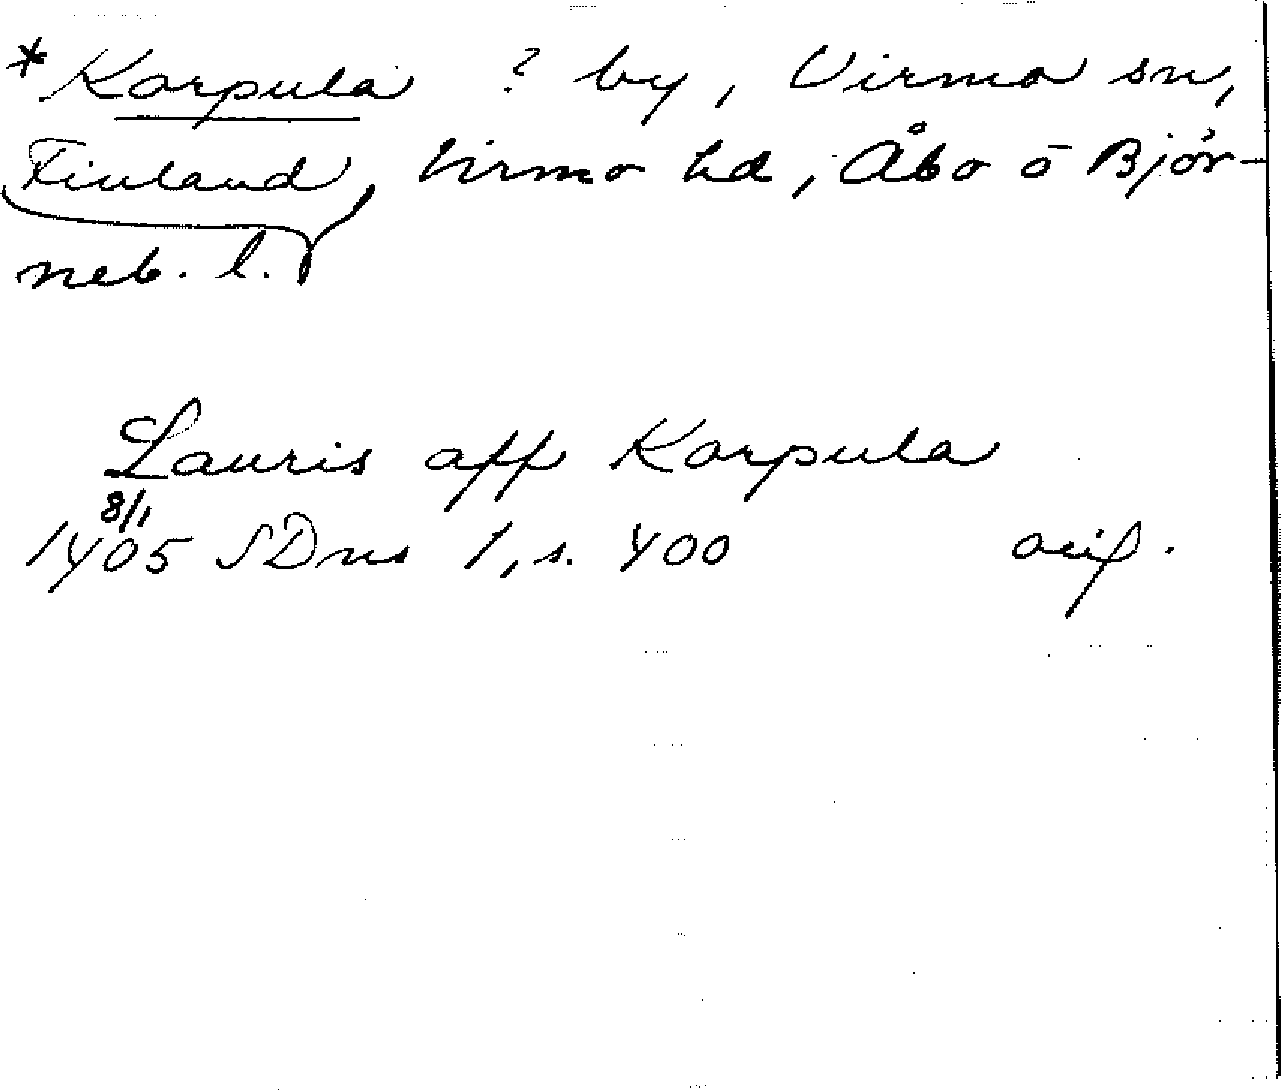 * Karpula ? by, Virmo sn,
Finland, Virmo hd, Åbo o Björ-
neb. l.
Lauris aff Karpula
8/1
1405 SDns 1, s. 400 orig.